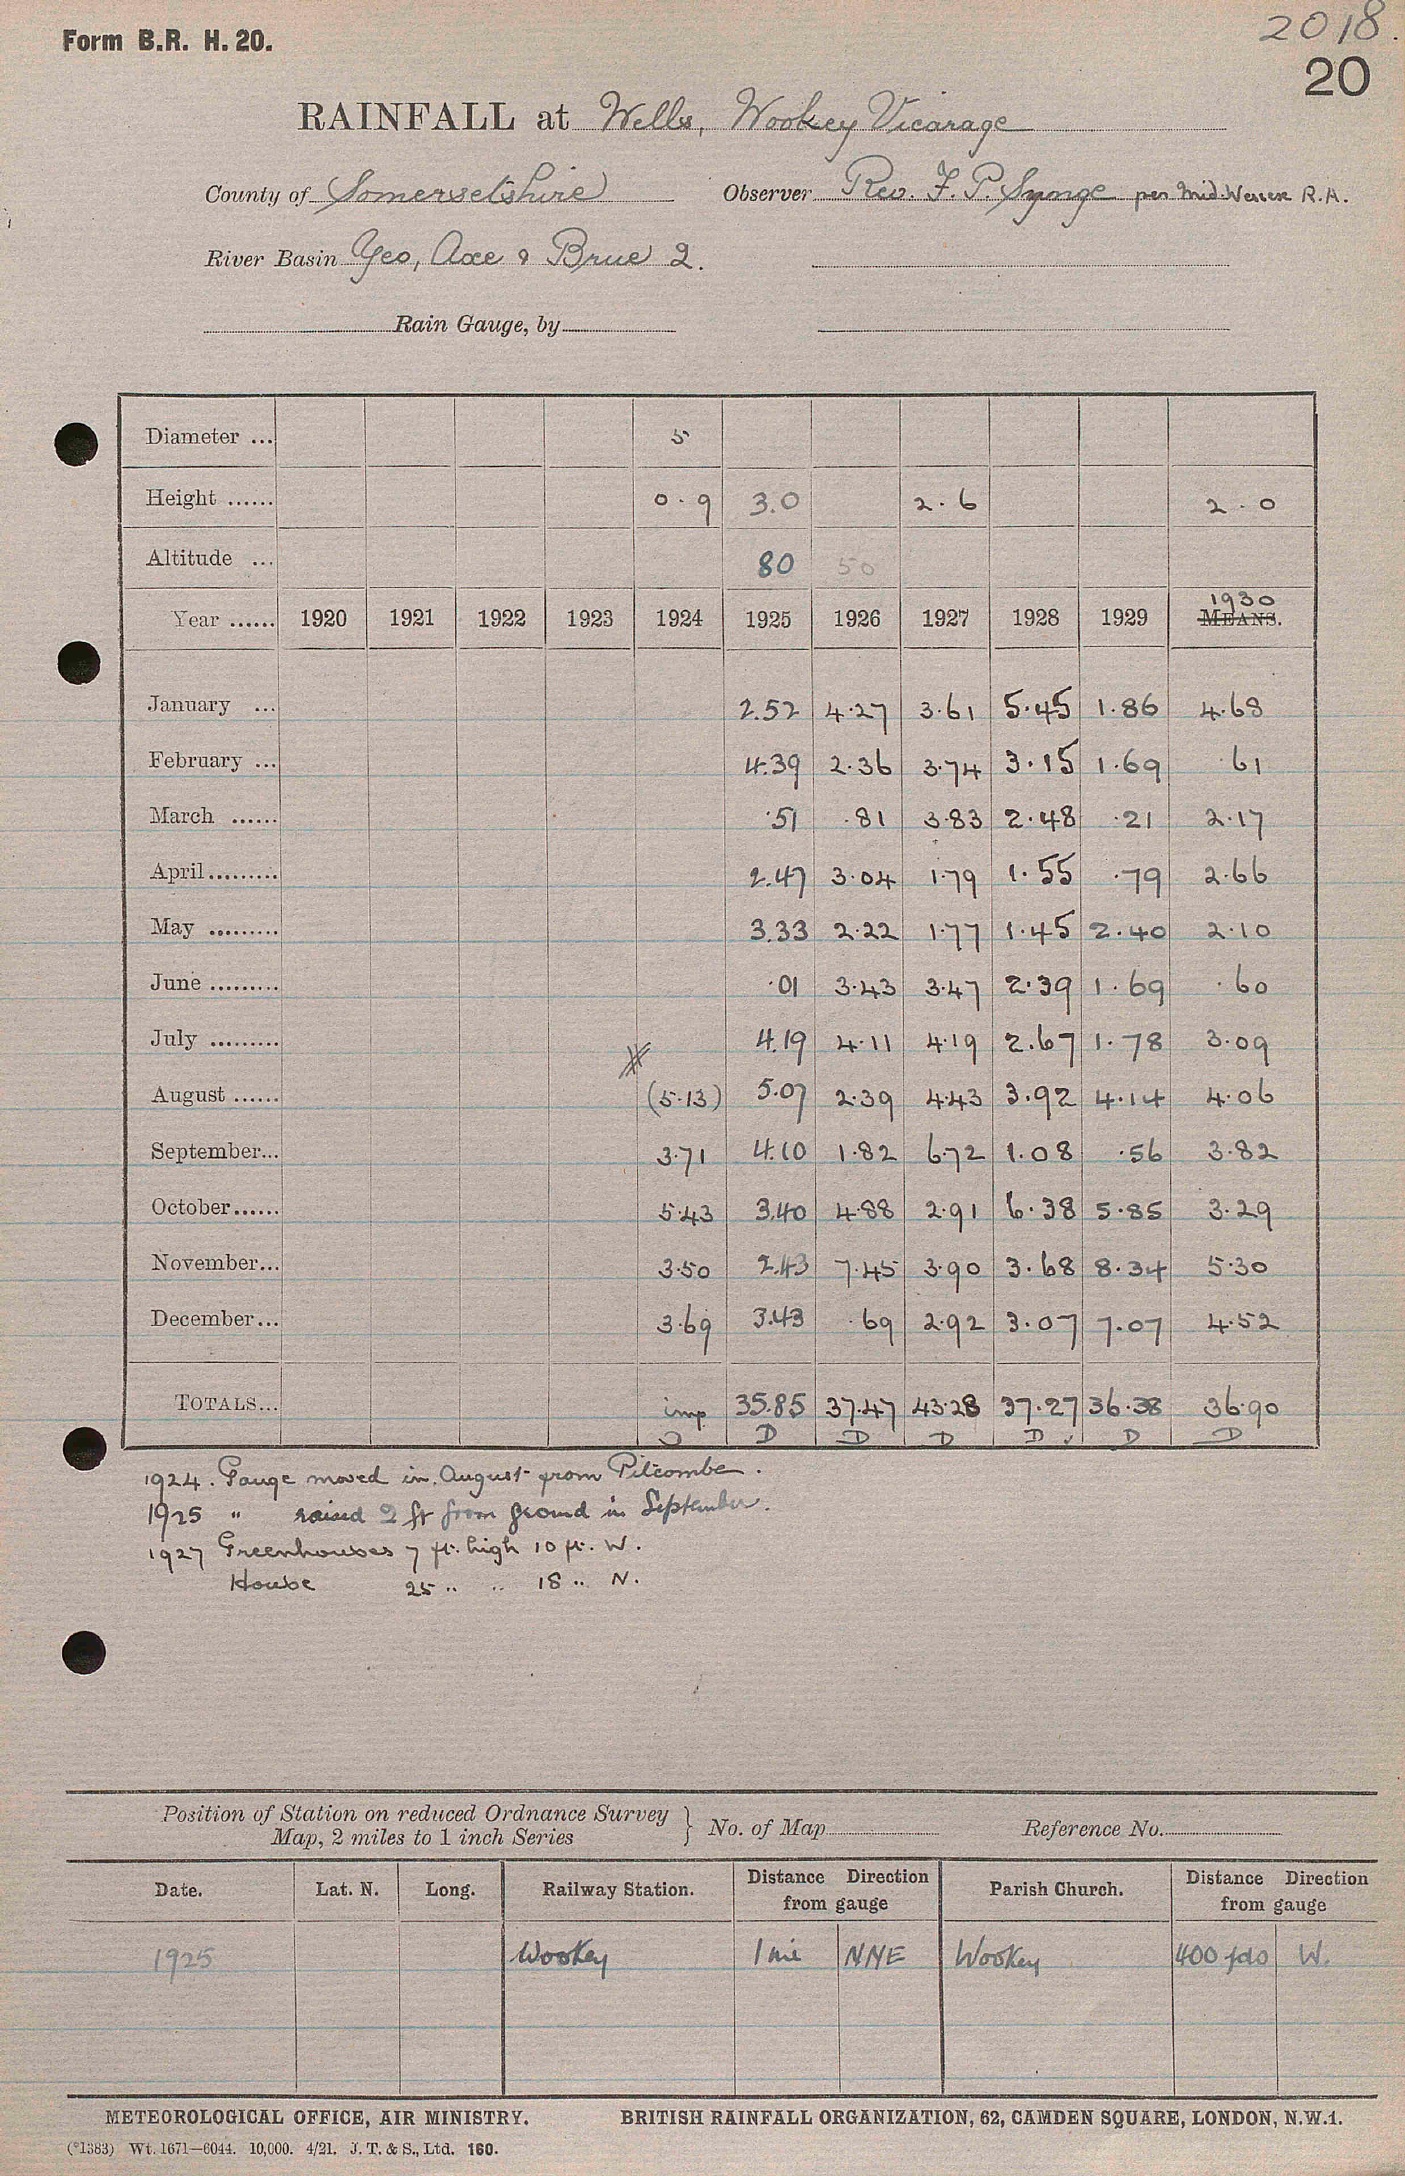 2018.
Form B.R. H. 20.
20
RAINFALL at Wells, Wookey Vicarage
County of Somersetshire Observer Rev. F. P. Synge per Mid-Wessex R.A.
River Basin Yeo, Axe & Brue 2.
Rain Gauge, by
Diameter ... 5
Height ...... 0.9 3.0 2.6 2.0
Altitude ... 80 50
1930
Year ...... 1920 1921 1922 1923 1924 1925 1926 1927 1928 1929 MEANS.
January ... 2.52 4.27 3.61 5.45 1.86 4.68
February ... 4.39 2.36 3.74 3.15 1.69 .61
March ...... .51 .81 3.83 2.48 .21 2.17
April......... 2.47 3.04 1.79 1.55 .79 2.66
May ......... 3.33 2.22 1.77 1.45 2.40 2.10
June ......... .01 3.43 3.47 2.39 1.69 .60
July ......... 4.19 4.11 4.19 2.67 1.78 3.09
August ...... (5.13) 5.07 2.39 4.43 3.92 4.14 4.06
September... 3.71 4.10 1.82 6.72 1.08 .56 3.82
October...... 5.43 3.40 4.88 2.91 6.38 5.85 3.29
November... 3.50 2.43 7.45 3.90 3.68 8.34 5.30
December... 3.69 3.43 .69 2.92 3.07 7.07 4.52
TOTALS... imp 35.85 37.47 43.28 37.27 36.38 36.90
D D D D D D D
1924. Gauge moved in August from Pitcombe.
1925 " raised 2 ft from ground in September.
1927 Greenhouses 7 ft. high 10 ft. W.
House 25 " " 18 " N.
Position of Station on reduced Ordnance Survey
Map, 2 miles to 1 inch Series } No. of Map Reference No.
Date. Lat. N. Long. Railway Station. Distance Direction from gauge Parish Church. Distance Direction from gauge
1925 Wookey 1 mi NNE Wookey 400 yds W.
METEOROLOGICAL OFFICE, AIR MINISTRY. BRITISH RAINFALL ORGANIZATION, 62, CAMDEN SQUARE, LONDON, N.W.1.
(*1383) Wt. 1671—6044. 10,000. 4/21. J. T. & S., Ltd. 160.